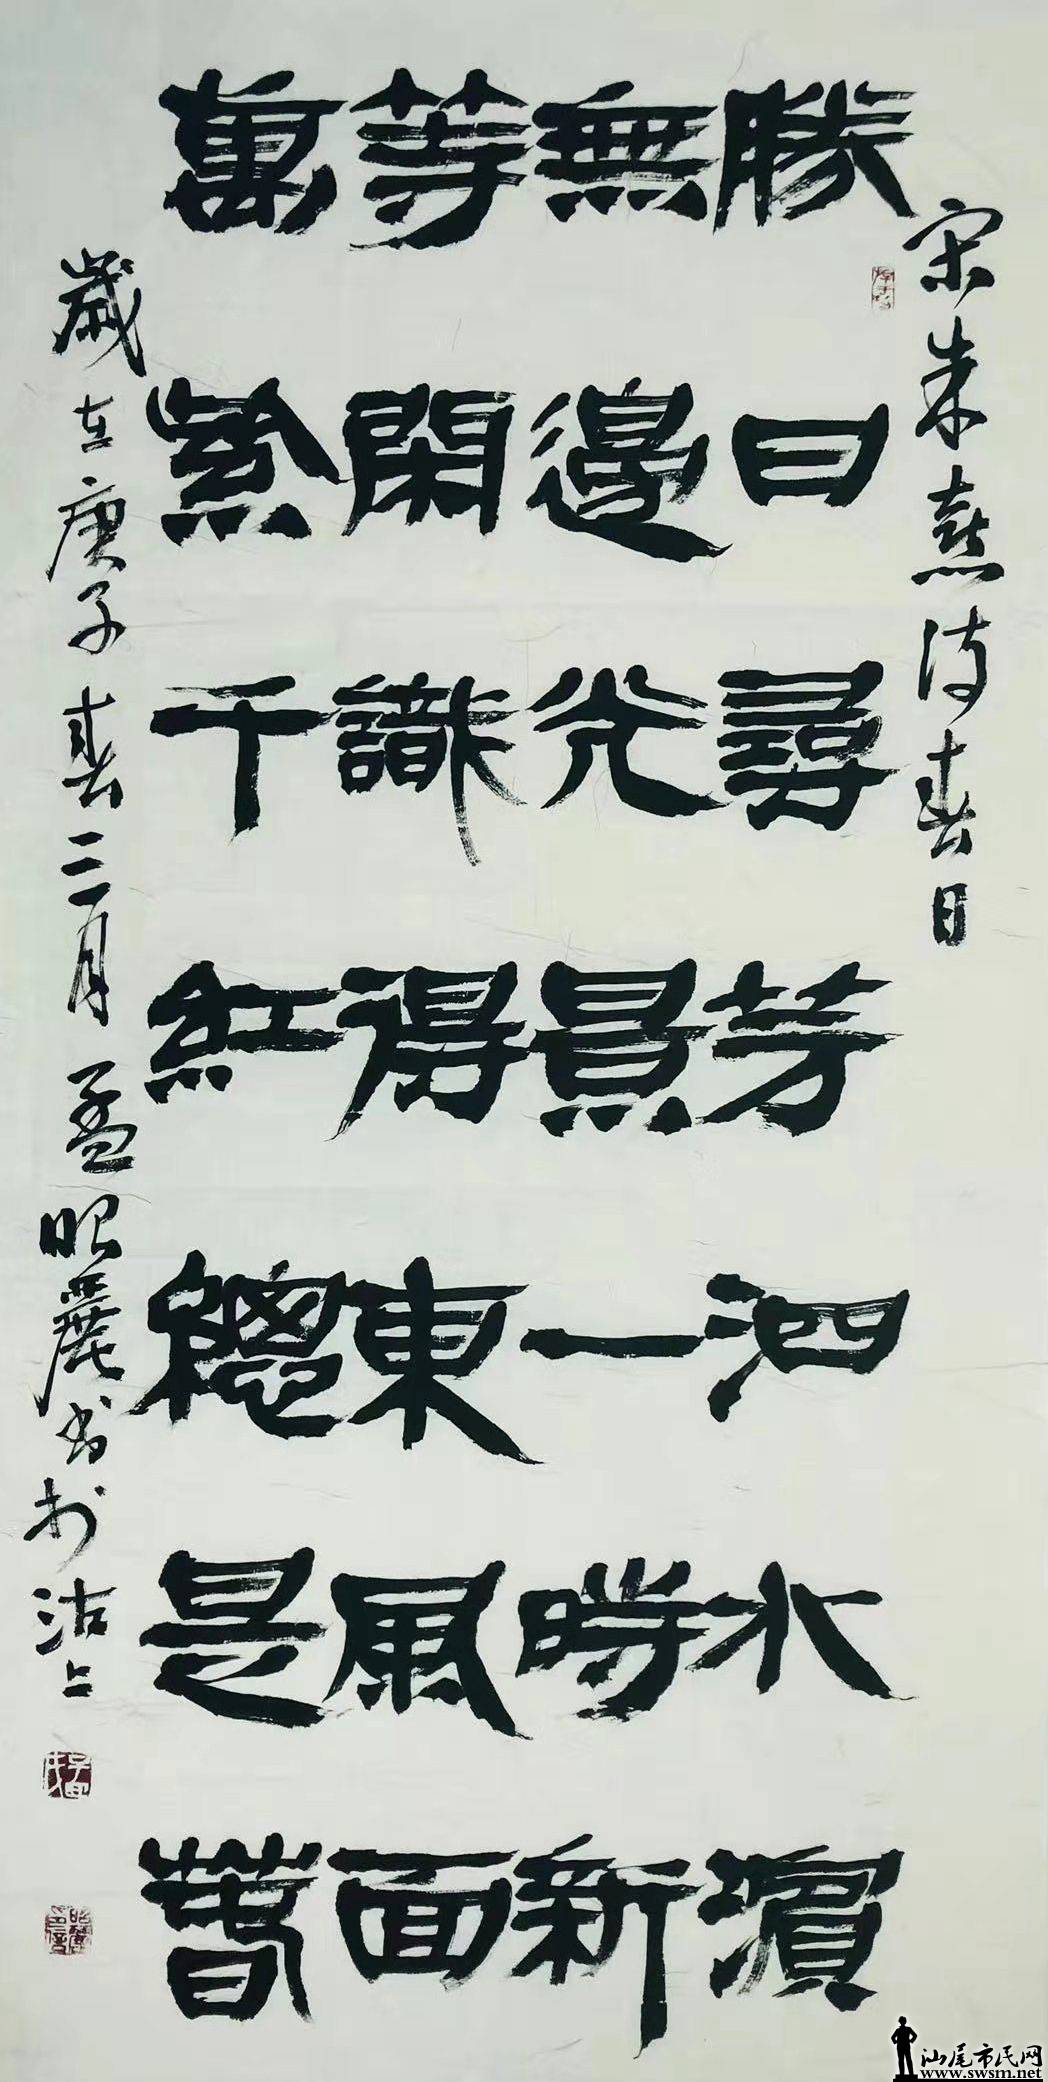 宋朱熹诗春日
勝日尋芳泗水濱
無邊光景一時新
等閑識得東風面
萬紫千紅總是春
歲在庚子春二月孟昭麗书於沽上
汕尾市民网
www.swsm.net